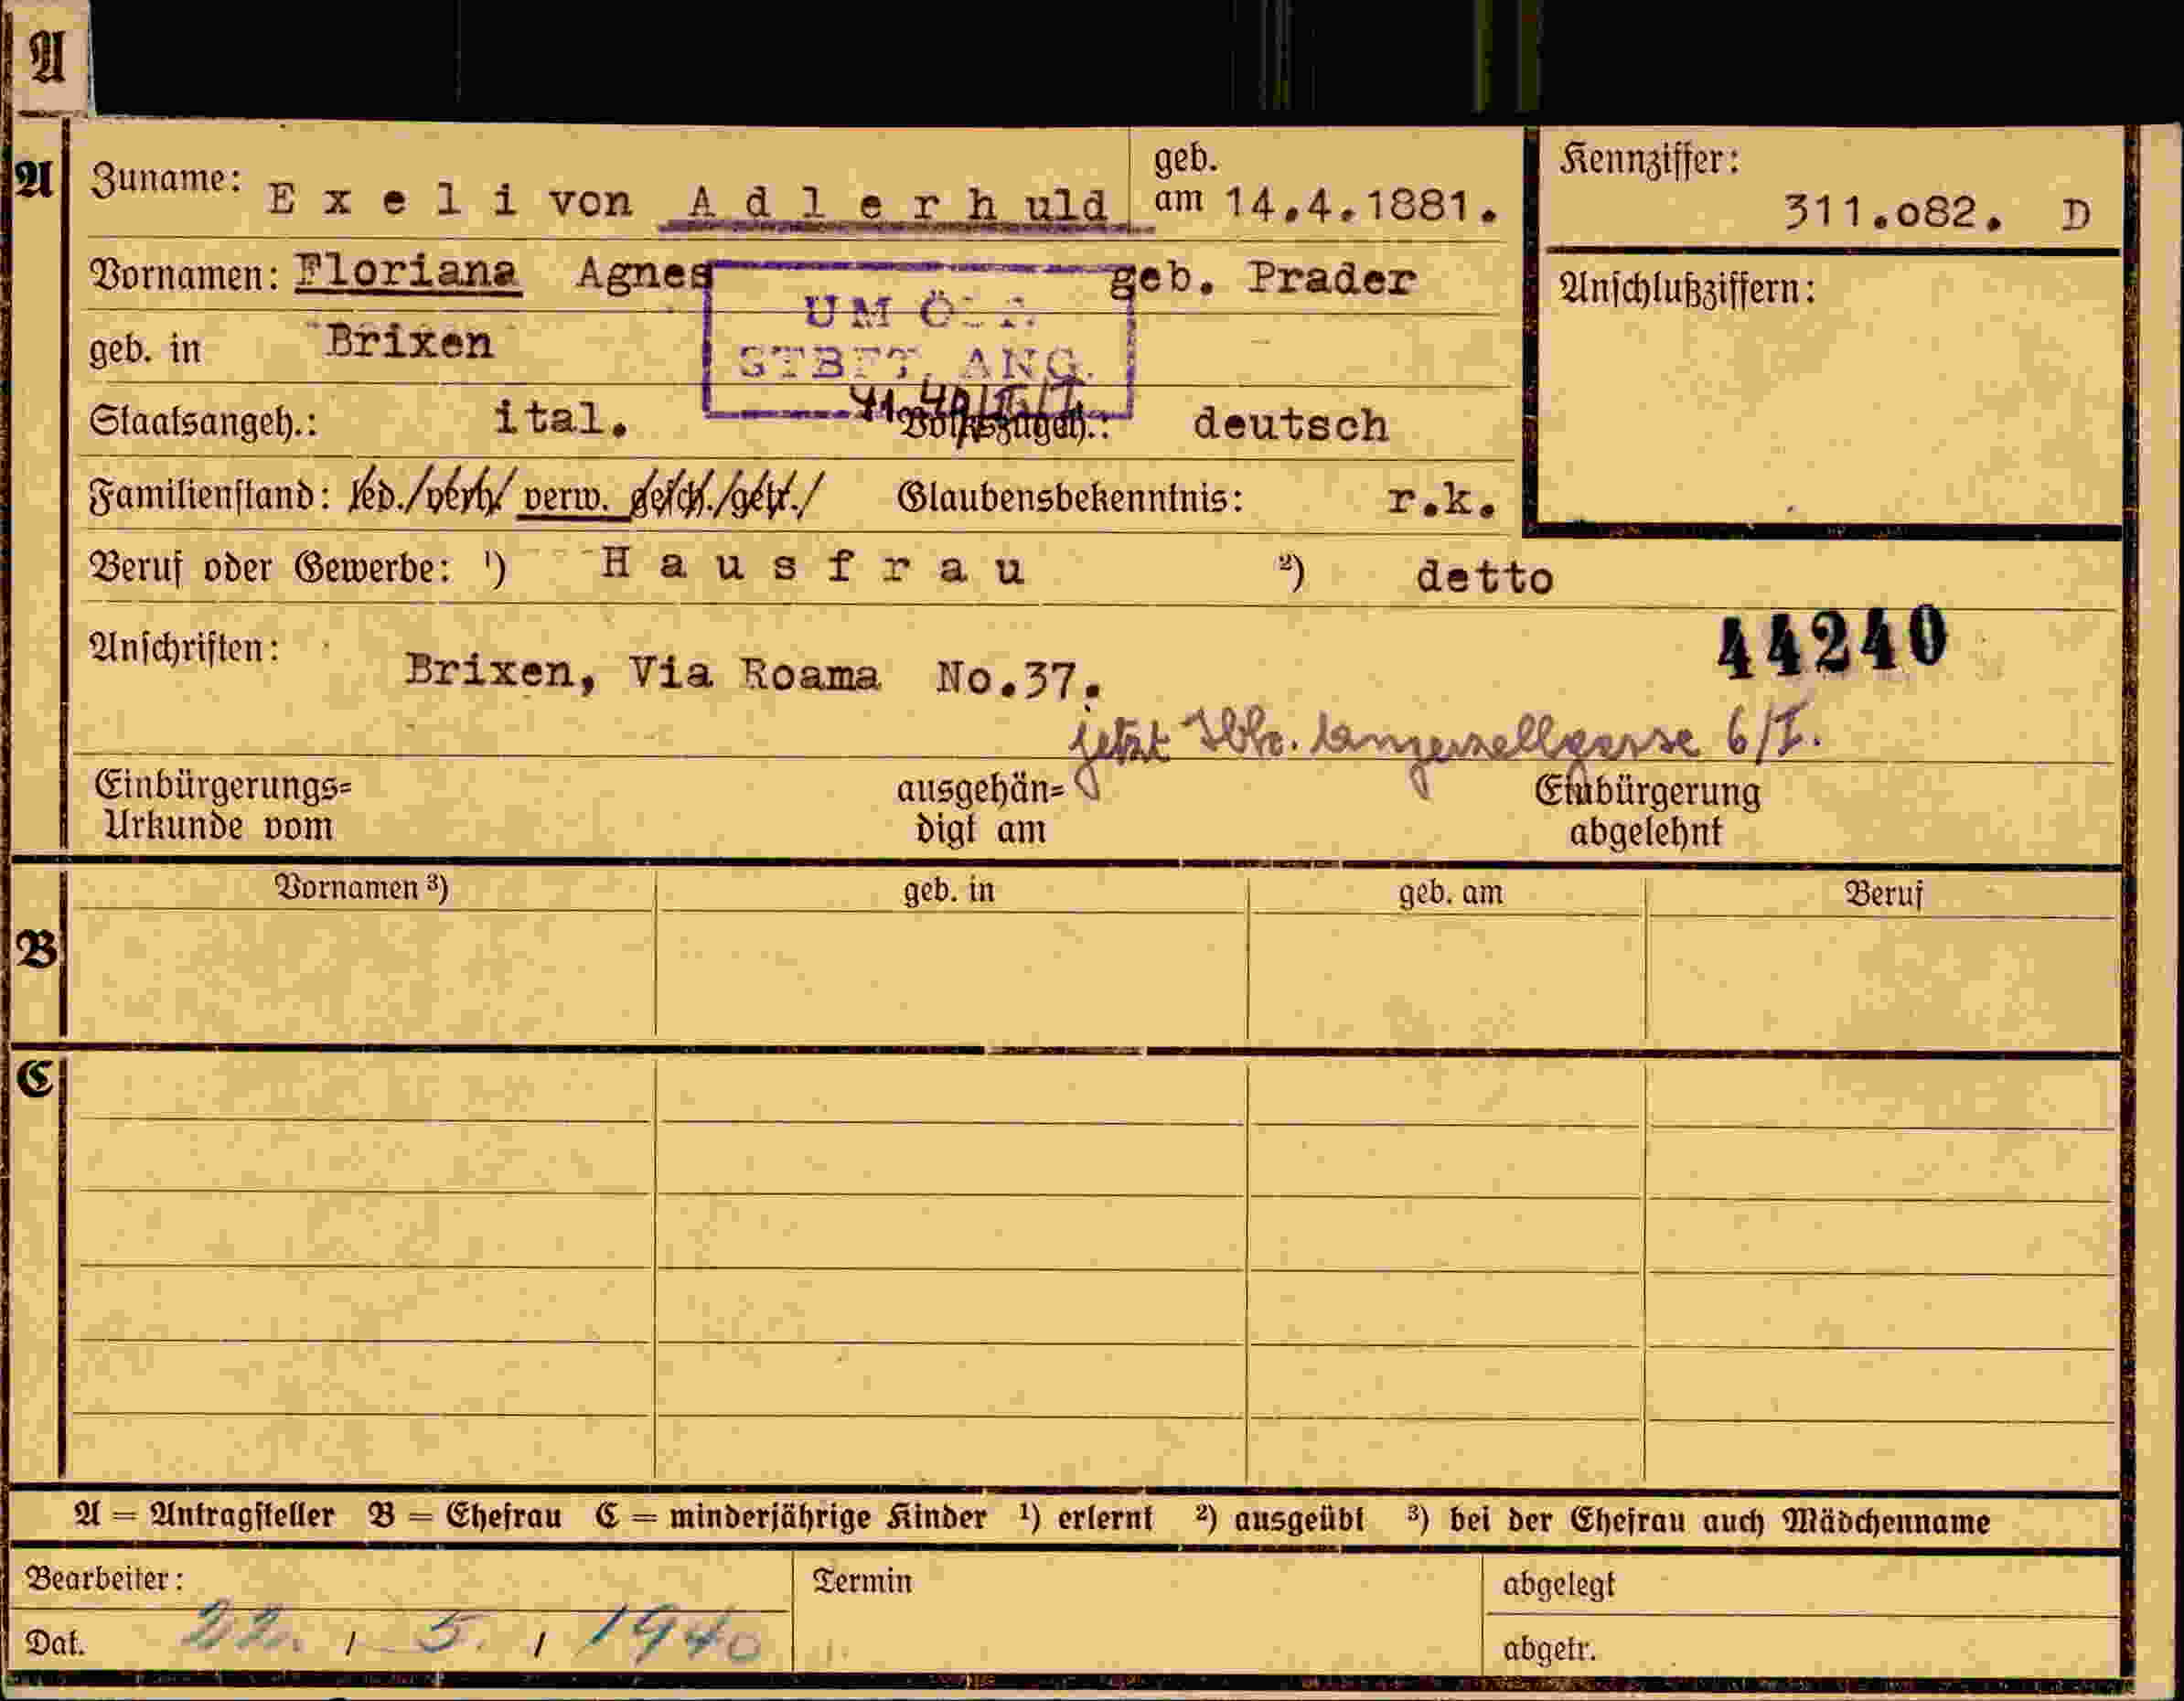 A
A
Zuname: E x e l i von A d l e r h uld geb. am 14.4.1881.
Kennziffer: 311.o82. D
Vornamen: Floriana Agnes geb. Prader
Anschlußziffern:
UM
STBFT. ANG.
geb. in Brixen
Staatsangeh.: ital. Volkszugeh.: deutsch
Familienstand: led./verh/ verw. gesch./getr./ Glaubensbekenntnis: r.k.
Beruf oder Gewerbe: ¹) H a u s f r a u ²) detto
44240
Anschriften: Brixen, Via Roama No.37.
jetzt Ibk. 6/I.
Einbürgerungs= Urkunde vom
ausgehän= digt am
Einbürgerung abgelehnt
B
Vornamen ³) geb. in geb. am Beruf
C
A = Antragsteller B = Ehefrau C = minderjährige Kinder ¹) erlernt ²) ausgeübt ³) bei der Ehefrau auch Mädchenname
Bearbeiter: Termin abgelegt
Dat. 22. , 5. , 1940 abgetr.